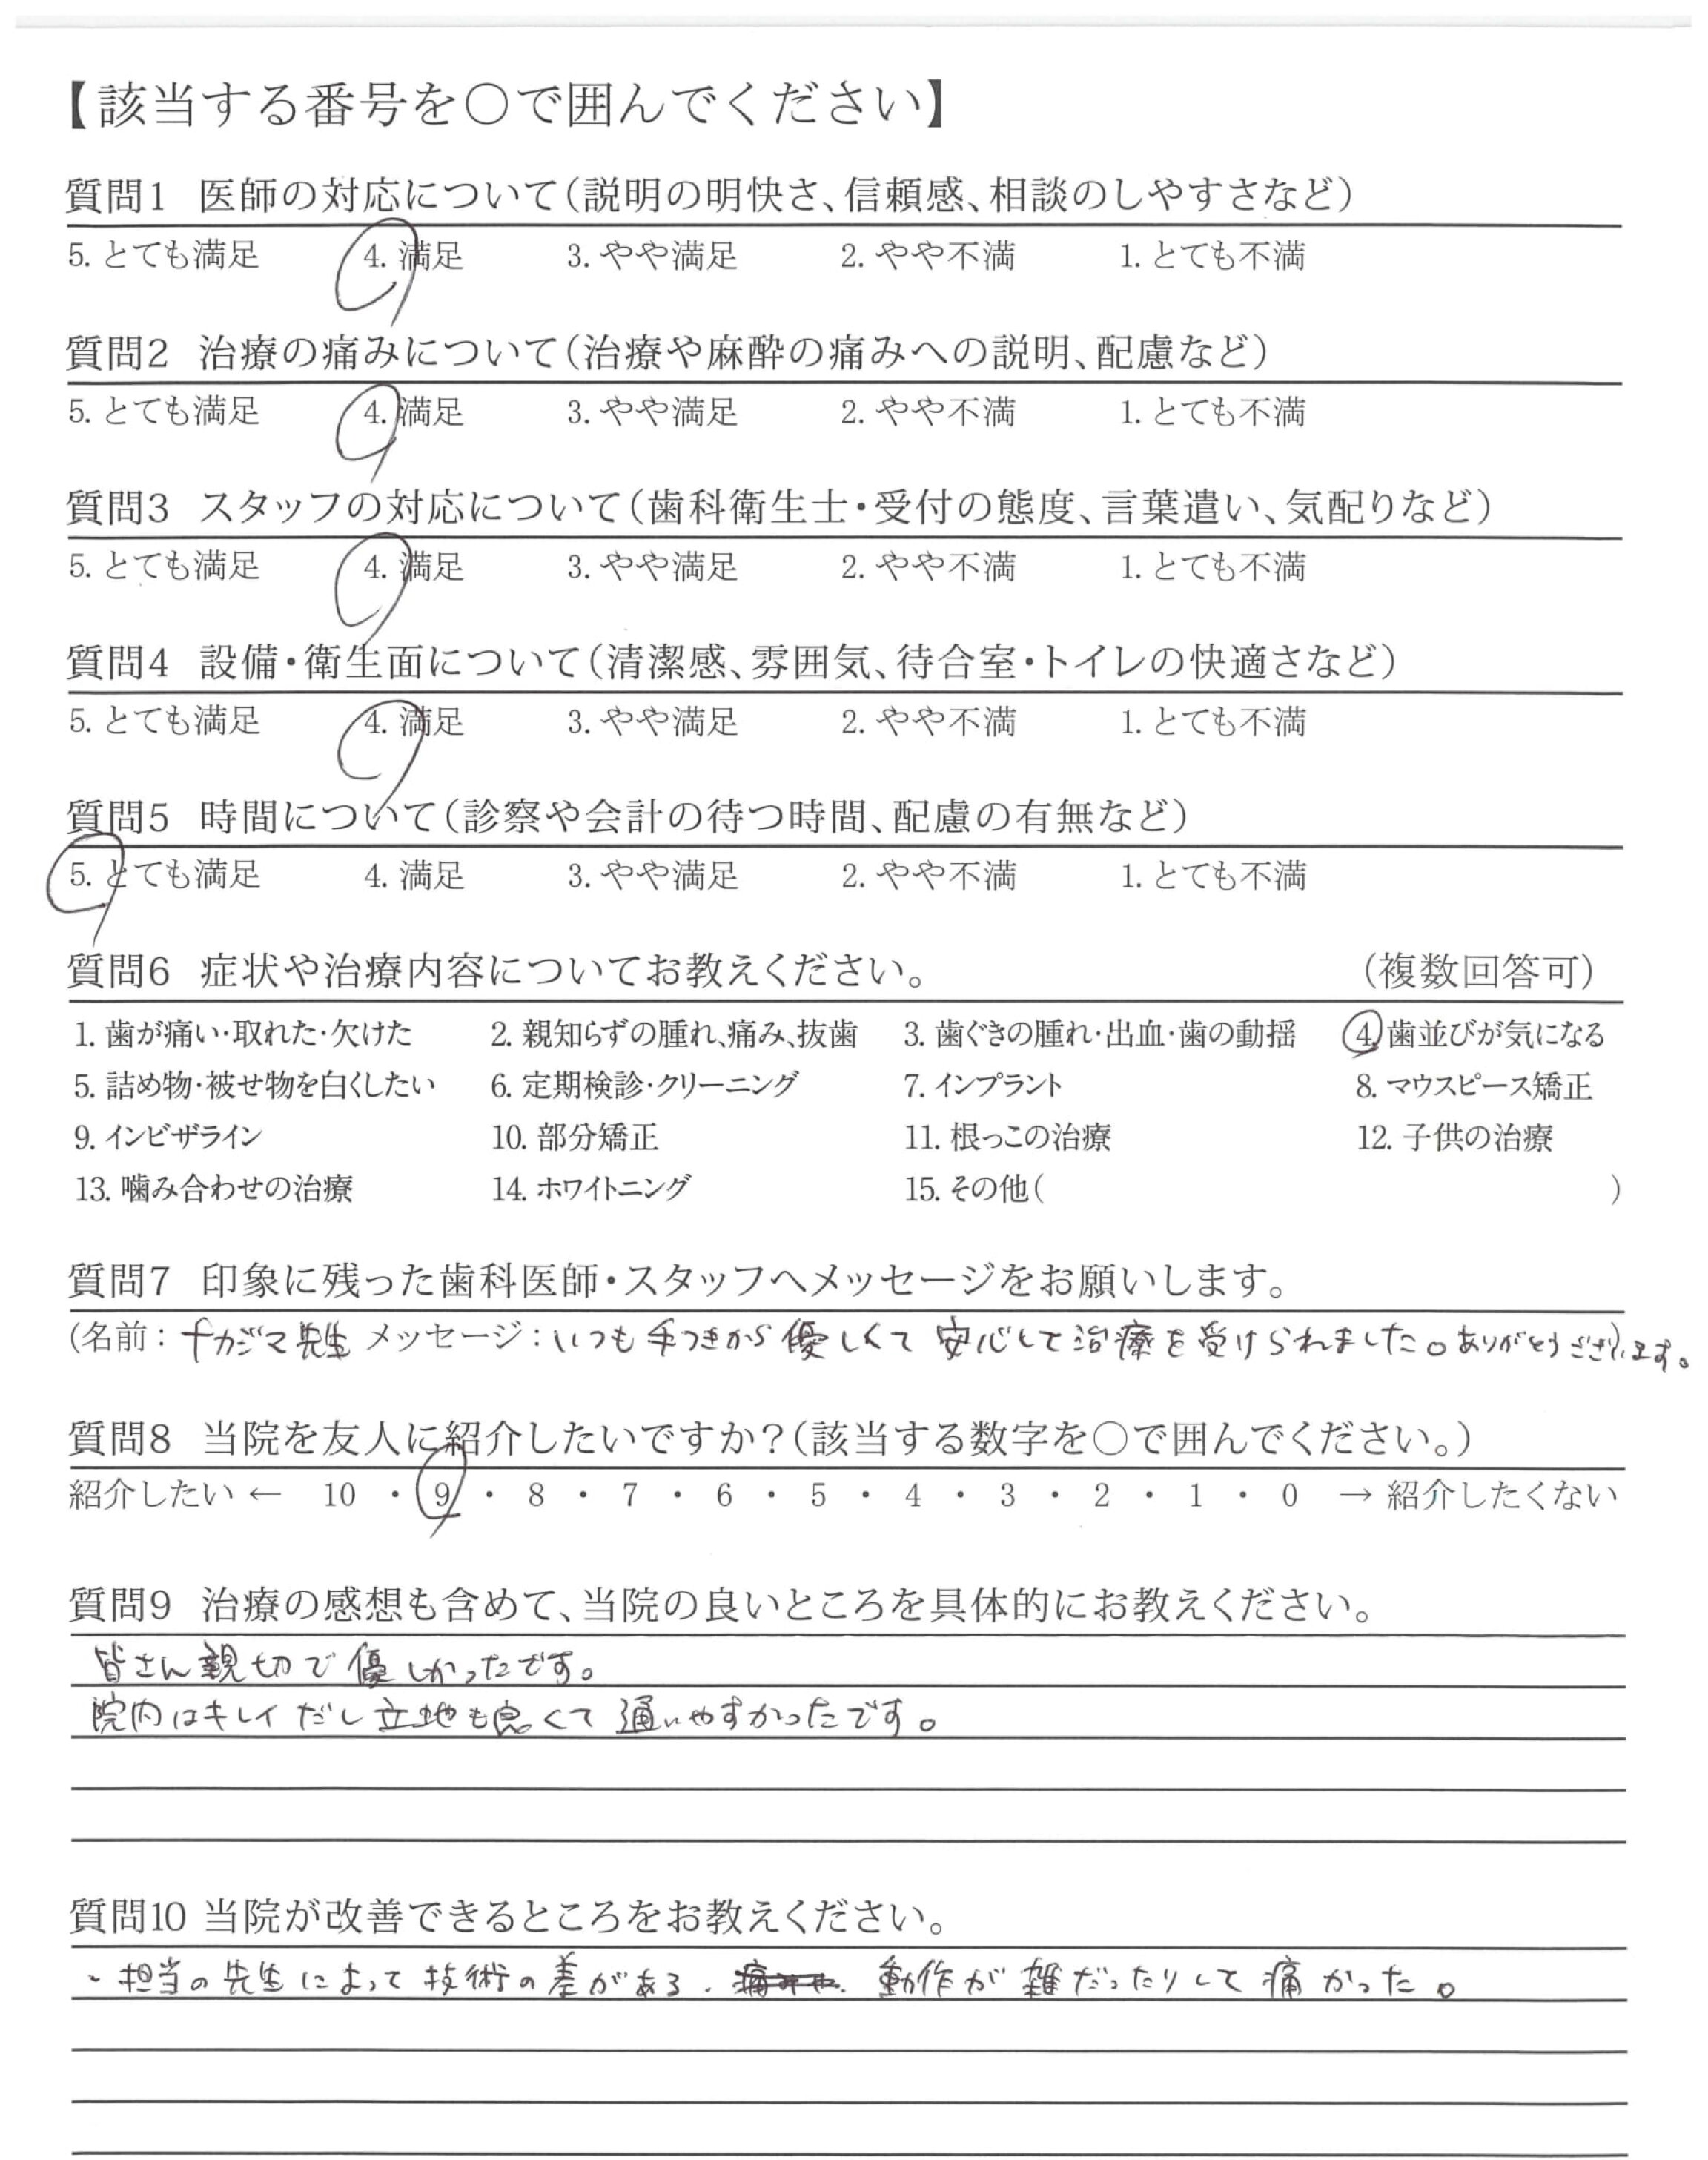 【該当する番号を○で囲んでください】
質問1 医師の対応について(説明の明快さ、信頼感、相談のしやすさなど)
5. とても満足 4. 満足 3. やや満足 2. やや不満 1. とても不満
質問2 治療の痛みについて(治療や麻酔の痛みへの説明、配慮など)
5. とても満足 4. 満足 3. やや満足 2. やや不満 1. とても不満
質問3 スタッフの対応について(歯科衛生士・受付の態度、言葉遣い、気配りなど)
5. とても満足 4. 満足 3. やや満足 2. やや不満 1. とても不満
質問4 設備・衛生面について(清潔感、雰囲気、待合室・トイレの快適さなど)
5. とても満足 4. 満足 3. やや満足 2. やや不満 1. とても不満
質問5 時間について(診察や会計の待つ時間、配慮の有無など)
5. とても満足 4. 満足 3. やや満足 2. やや不満 1. とても不満
質問6 症状や治療内容についてお教えください。 (複数回答可)
1. 歯が痛い・取れた・欠けた 2. 親知らずの腫れ、痛み、抜歯 3. 歯ぐきの腫れ・出血・歯の動揺 4. 歯並びが気になる
5. 詰め物・被せ物を白くしたい 6. 定期検診・クリーニング 7. インプラント 8. マウスピース矯正
9. インビザライン 10. 部分矯正 11. 根っこの治療 12. 子供の治療
13. 噛み合わせの治療 14. ホワイトニング 15. その他( )
質問7 印象に残った歯科医師・スタッフへメッセージをお願いします。
(名前: ナカジマ先生 メッセージ: いつも手つきから優しくて安心して治療を受けられました。ありがとうございます。)
質問8 当院を友人に紹介したいですか?(該当する数字を○で囲んでください。)
紹介したい ← 10 ・ 9 ・ 8 ・ 7 ・ 6 ・ 5 ・ 4 ・ 3 ・ 2 ・ 1 ・ 0 → 紹介したくない
質問9 治療の感想も含めて、当院の良いところを具体的にお教えください。
皆さん親切で優しかったです。
院内はキレイだし立地も良くて通いやすかったです。
質問10 当院が改善できるところをお教えください。
・担当の先生によって技術の差がある. 動作が雑だったりして痛かった。